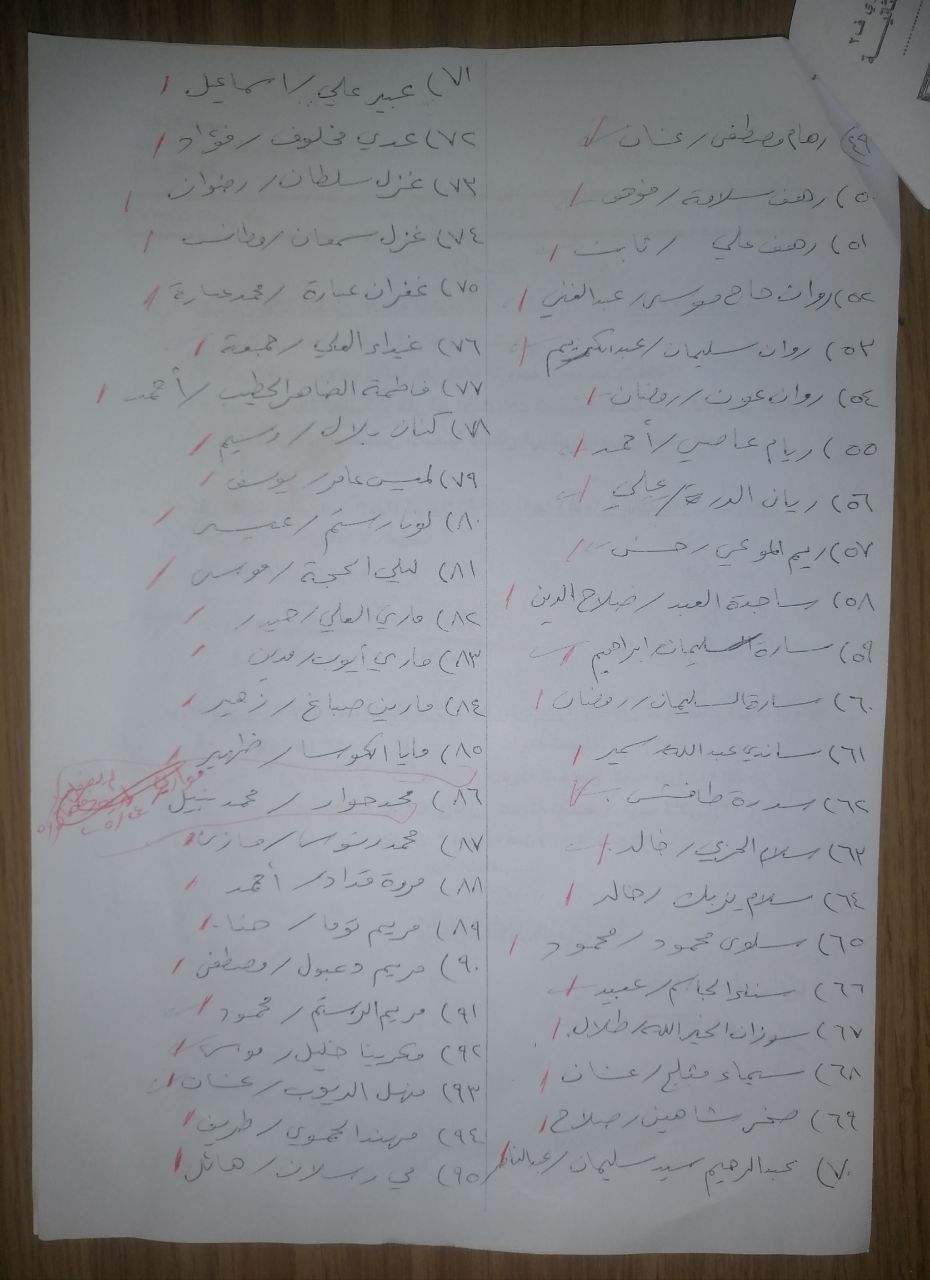 ٤٩) رهام مصطفى / غسان
٥٠) رهف سلامة /
٥١) رهف علي / ثابت
٥٢) روان حاج موسى / عبد الغني
٥٣) روان سليمان / عبد الكريم
٥٤) روان عون / رمضان
٥٥) ريام عاصي / أحمد
٥٦) ريان الدرة / علي
٥٧) ريم الموعي / حسن
٥٨) ساجدة العبد / صلاح الدين
٥٩) سارة السليمان / ابراهيم
٦٠) سارة السليمان / رمضان
٦١) ساندي عبد الله / سمير
٦٢) سدرة طافش
٦٣) سلام / خالد
٦٤) سلام يزبك / خالد
٦٥) سلوى محمود / محمود
٦٦) سناء الجاسم / عبيد
٦٧) سوزان الخير الله / طلال
٦٨) سيماء مفلح / غسان
٦٩) صخر شاهين / صلاح
٧٠) عبد الرحيم سيد سليمان /
٧١) عبير علي / اسماعيل
٧٢) عدي مخلوف / فؤاد
٧٣) غزل سلطان / رضوان
٧٤) غزل سمعان /
٧٥) غفران عبارة / محمد عبارة
٧٦) غيداء العلي / جمعة
٧٧) فاطمة الضاهر الخطيب / أحمد
٧٨) كنان بلال / وسيم
٧٩) لميس عامر / يوسف
٨٠) لونا رستم / عيسى
٨١) ليلى الحجة / موسى
٨٢) ماري العلي / حيدر
٨٣) ماري أيوب / مدين
٨٤) مارين صباغ / زهير
٨٥) مايا الكوسا /
٨٦) محمد حوار / محمد نبيل
٨٧) محمد / مازن
٨٨) مروة قداد / أحمد
٨٩) مريم توما / حنا
٩٠) مريم دعبول / مصطفى
٩١) مريم الرستم / محمود
٩٢) مكرينا خليل / موسى
٩٣) منهل الديوب / غسان
٩٤) مهند الحموي / طريف
٩٥) مي رسلان / هائل